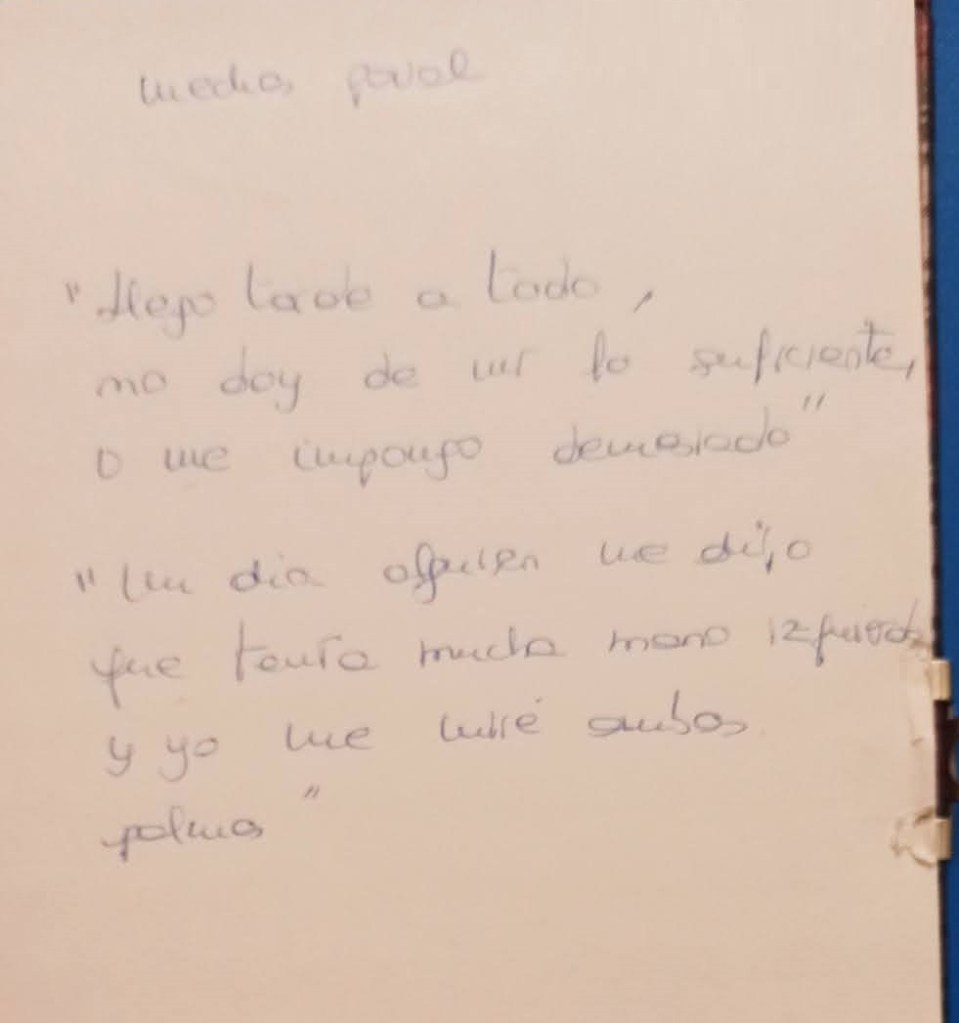 "Llego tarde a todo,
no doy de mí lo suficiente,
o me impongo demasiado"
"Un día alguien me dijo
que tenía mucha mano izquierda
y yo me miré ambas
palmas"